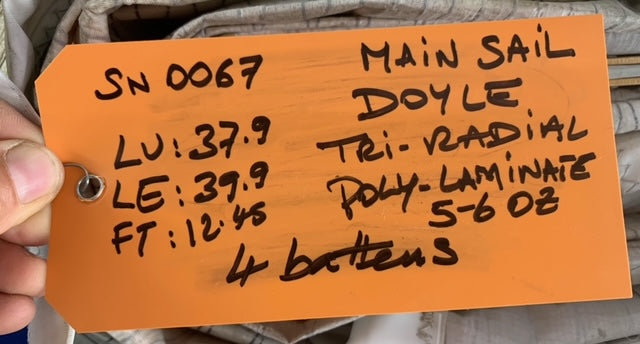 SN 0067
LU: 37.9
LE: 39.9
FT: 12.45
MAIN SAIL
DOYLE
TRI-RADIAL
POLY-LAMINATE
5-6 OZ
4 battens